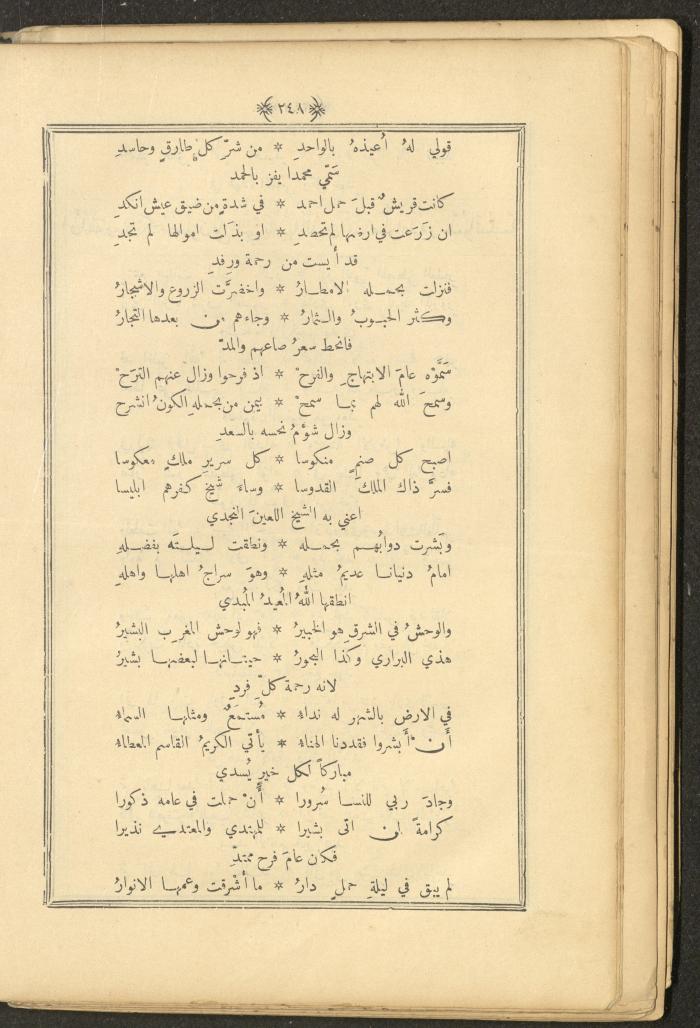 ﴿٢٤٨﴾
قولي لهُ أعيذهُ بالواحدِ * من شرِّ كلِ طارقٍ وحاسدِ
سَمّي محمدا يفز بالحمد
كانت قريشٌ قبلَ حمل احمد * في شدةٍ من ضيق عيش انكدِ
ان زَرَعت في ارضها لم تحصدِ * او بذلت اموالها لم تجدِ
قد أيست من رحمة ورِفدِ
فنزلت بحمله الامطارُ * واخضرَّت الزروع والاشجارُ
وكثر الحبوبُ والثمارُ * وجاءهم من بعدها التجارُ
فانحط سعرُ صاعهم والمدِّ
سَمَّوْه عامَ الابتهاجِ والفرحْ * اذ فرحوا وزال عنهم الترَحْ
وسمحَ الله لهم بما سمحْ * بيمن من بحملهِ الكونُ انشرح
وزال شؤمُ نحسه بالسعدِ
اصبح كل صنمٍ منكوسا * كل سريرِ ملكٍ معكوسا
فسرَّ ذاك الملكَ القدوسا * وساءَ شيخَ كفرهم ابليسا
اعني به الشيخ اللعينَ النجدي
وبَشرت دوابُهم بحمله * ونطقت ليلتَه بفضلهِ
امامُ دنيانا عديمُ مثلهِ * وهوَ سراجُ اهلها واهلهِ
انطقها اللهُ المُعيدُ المُبدي
والوحشُ في الشرقِ هو الخبيرُ * فهو لوحش المغربِ البشيرُ
هذي البراري وكَذا البحورُ * حيتانها لبعضها بشيرُ
لانه رحمة كلِّ فردِ
في الارض بالشهر له نداءُ * مُستمَعٌ ومثلها السماءُ
أنْ أَبشروا فقددنا الهناءُ * يأتي الكريمُ القاسم المعطاءُ
مباركاً لكل خيرٍ يُسدي
وجادَ ربي للنسا سُرورا * أنْ حملت في عامه ذكورا
كرامةً لمن اتى بشيرا * للمهتدي والمعتدي نذيرا
فكان عامَ فرح ممتدِّ
لم يبق في ليلةِ حملٍ دارُ * ما أشرقت وعمها الانوارُ